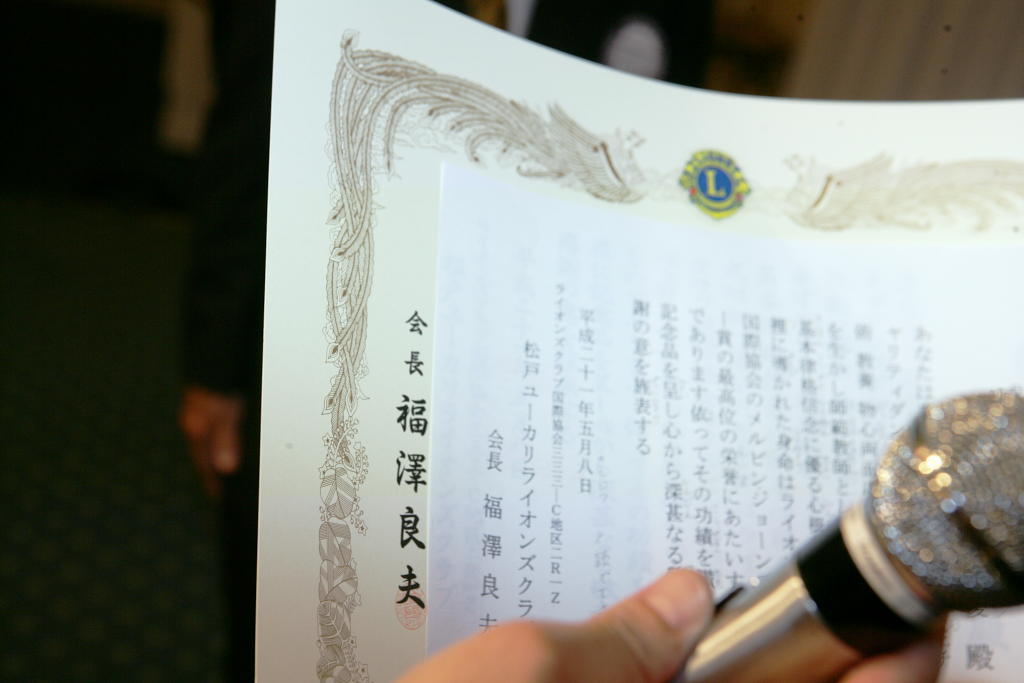 殿
あなたは
ャリティダ
術 教養 物心両面
を生かし師範教師と
基本律格信念に優る心根
稚に導かれた身命はライオ
国際協会のメルビンジョーン
一賞の最高位の栄誉にあたいす
であります依ってその功績を讃
記念品を呈し心から深甚なる
謝の意を族表する
平成二十一年五月八日
ライオンズクラブ国際協会三三三ーC地区二R一Z
松戸ユーカリライオンズクラ
会長 福澤良夫
会長 福澤良夫
L